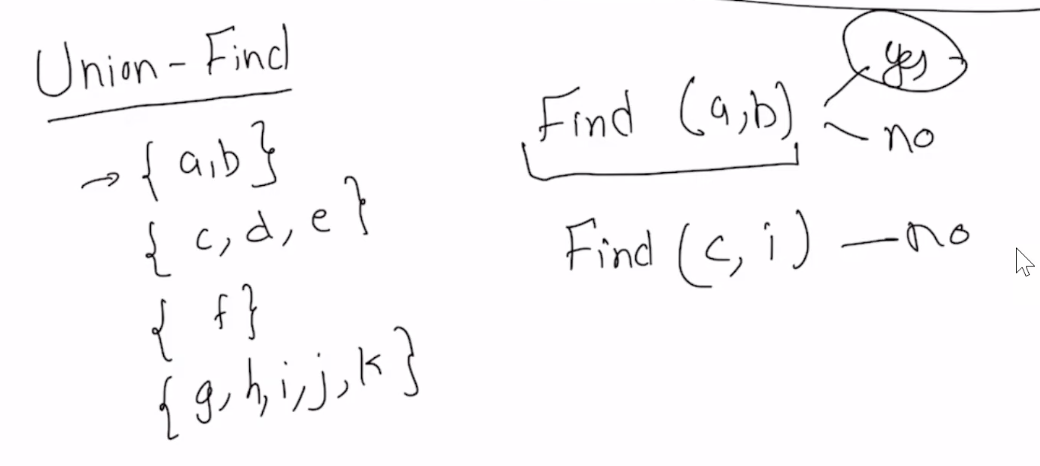 Union - Find
{ a,b }
{ c, d, e }
{ f }
{ g, h, i, j, k }
Find (a,b)
yes
no
Find (c, i) — no